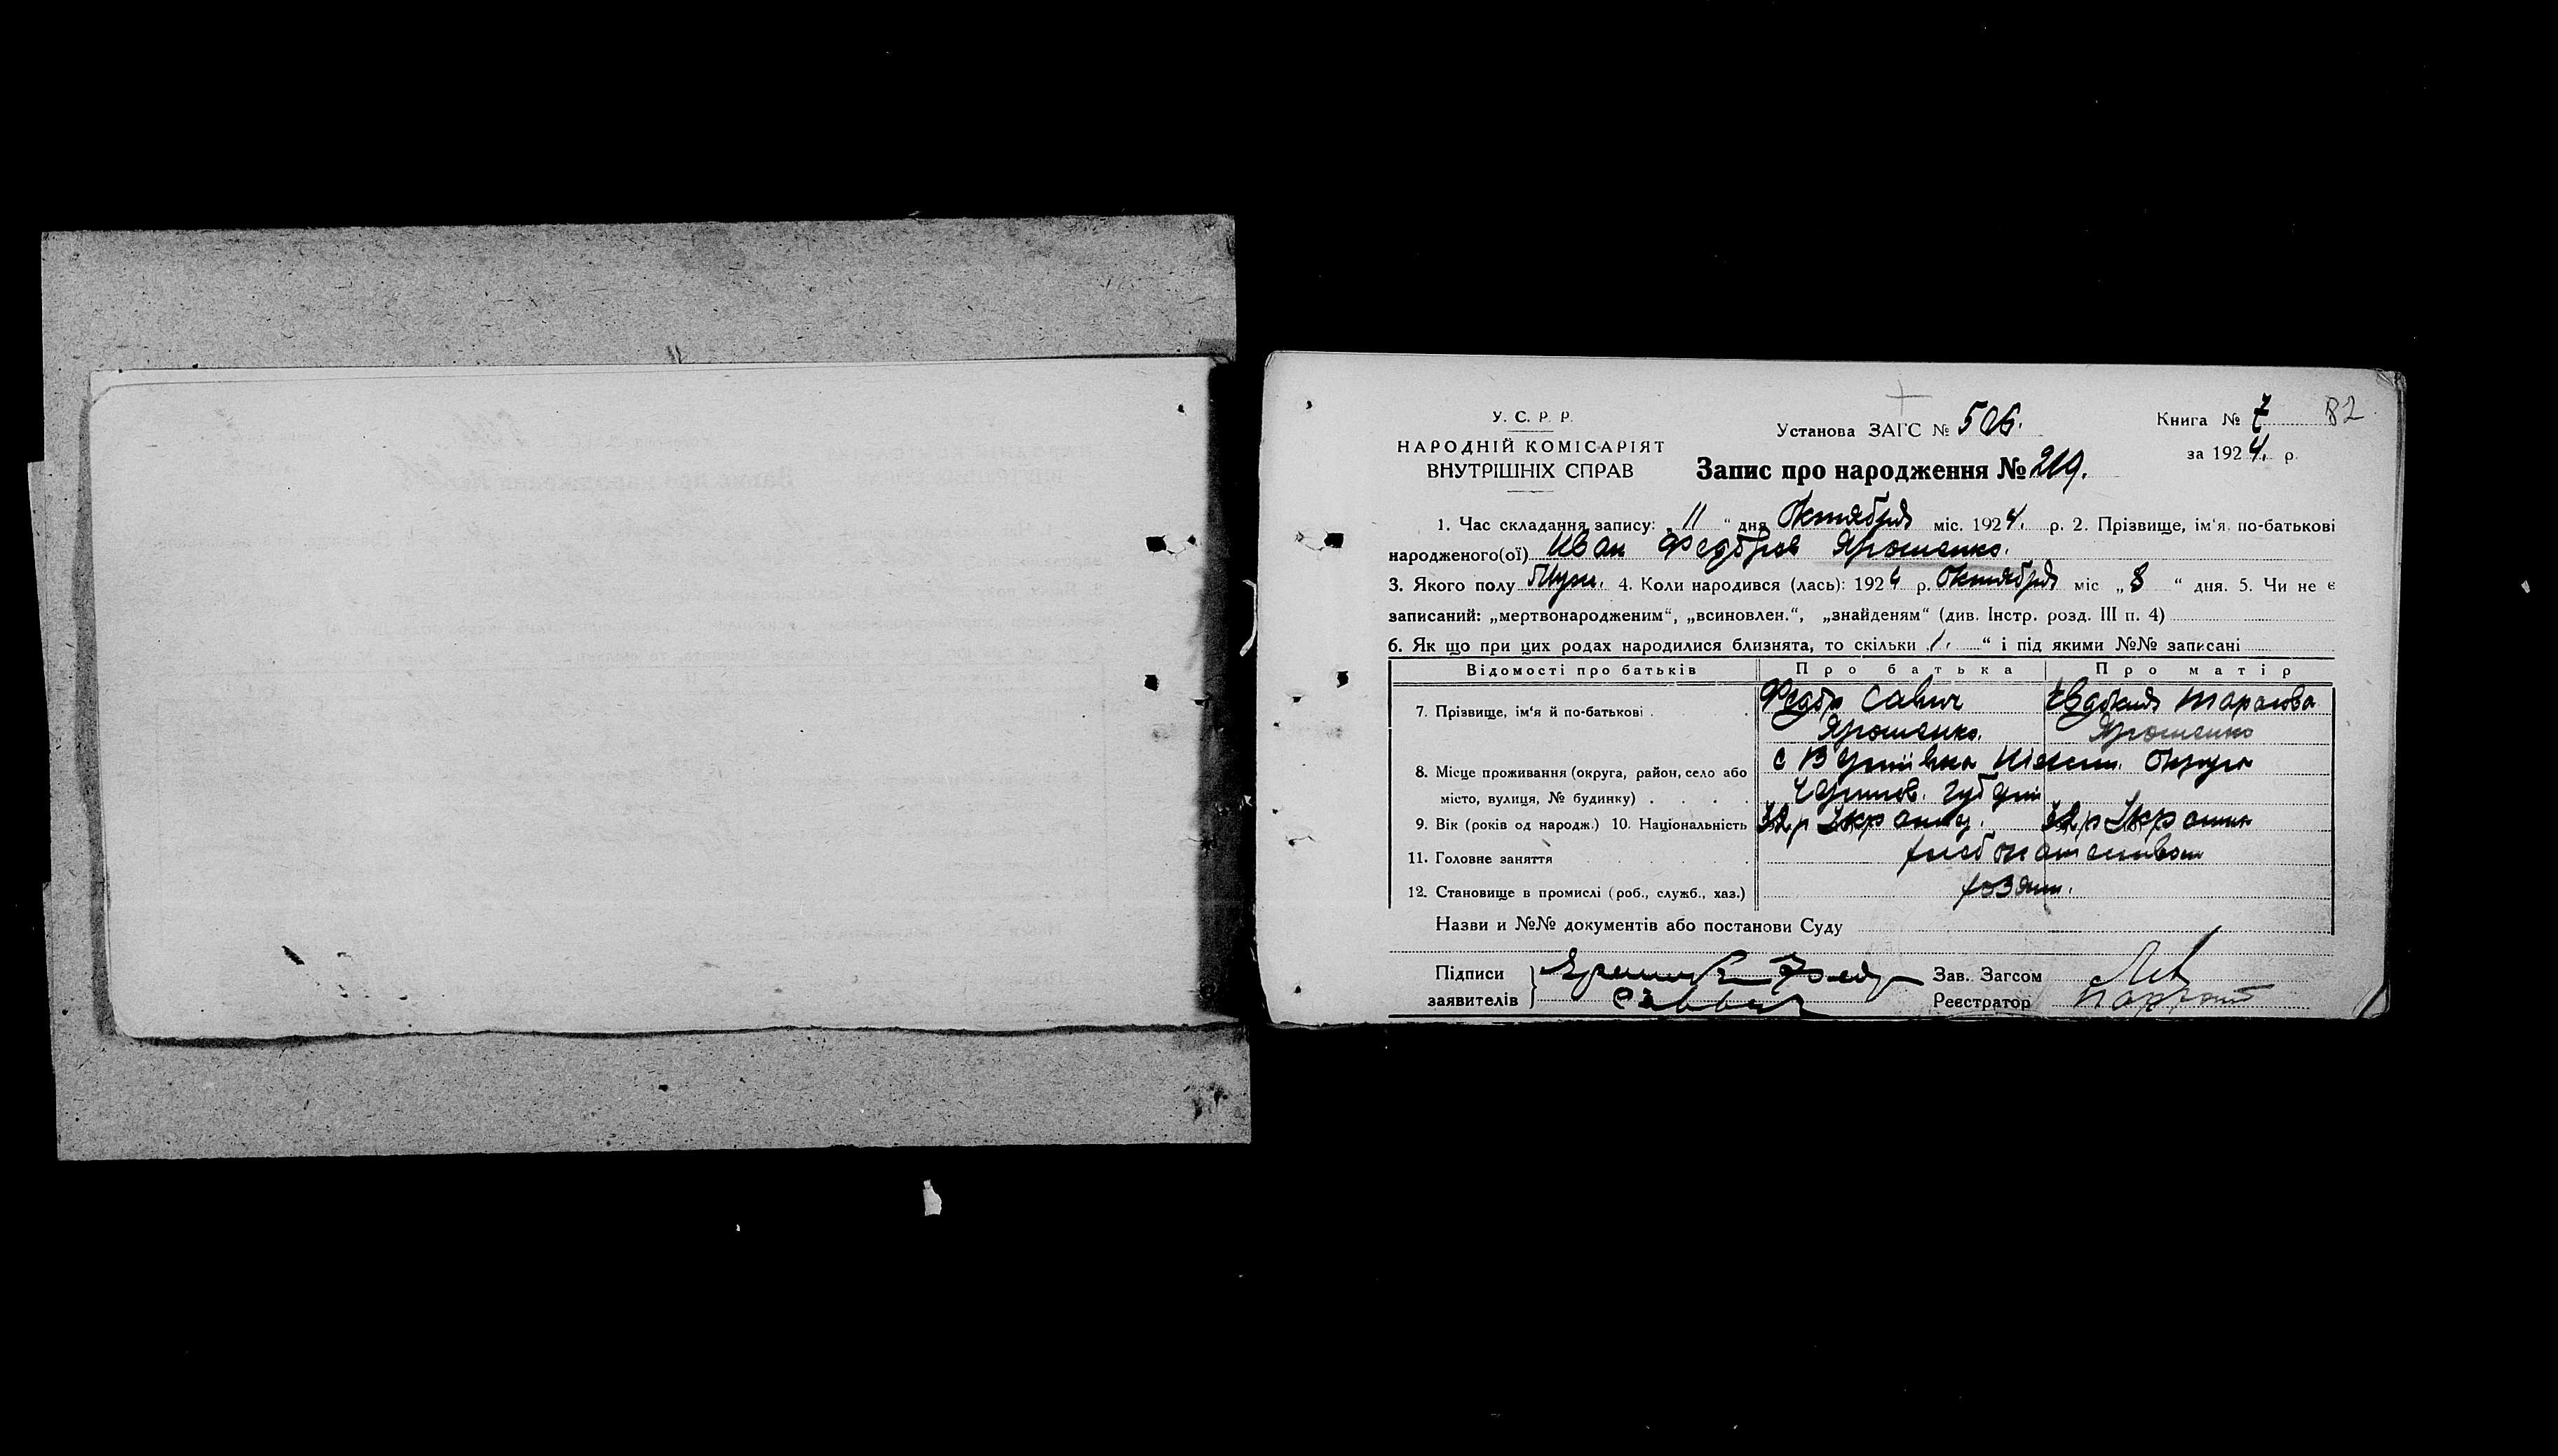 У. С. Р. Р.
НАРОДНІЙ КОМІСАРІЯТ
ВНУТРІШНІХ СПРАВ
Установа ЗАГС № 506.
Запис про народження № 219.
Книга № 7 82
за 1924. р.
1. Час складання запису: „11“ дня Октября міс. 1924. р. 2. Прізвище, ім'я, по-батькові
народженого(ої) Иван Федоров Ярошенко.
3. Якого полу Муж. 4. Коли народився (лась): 1924 р. Октября міс „8“ дня. 5. Чи не є
записаний: „мертвонародженим“, „всиновлен.“, „знайденям“ (див. Інстр. розд. III п. 4)
6. Як що при цих родах народилися близнята, то скільки 1. “ і під якими №№ записані
Відомості про батьків Про батька Про матір
7. Прізвище, ім'я й по-батькові . Федор Савич Евдокия Тарасова
Ярошенко. Ярошенко
8. Місце проживання (округа, район, село або с Округи
місто, вулиця, № будинку) . . . . Чернигов. губернии
9. Вік (років од народж.) 10. Національність 32 р 32 р
11. Головне заняття хлебопашеством
12. Становище в промислі (роб., служб., хаз.) хозяин.
Назви и №№ документів або постанови Суду
Підписи
заявителів
Зав. Загсом
Реєстратор